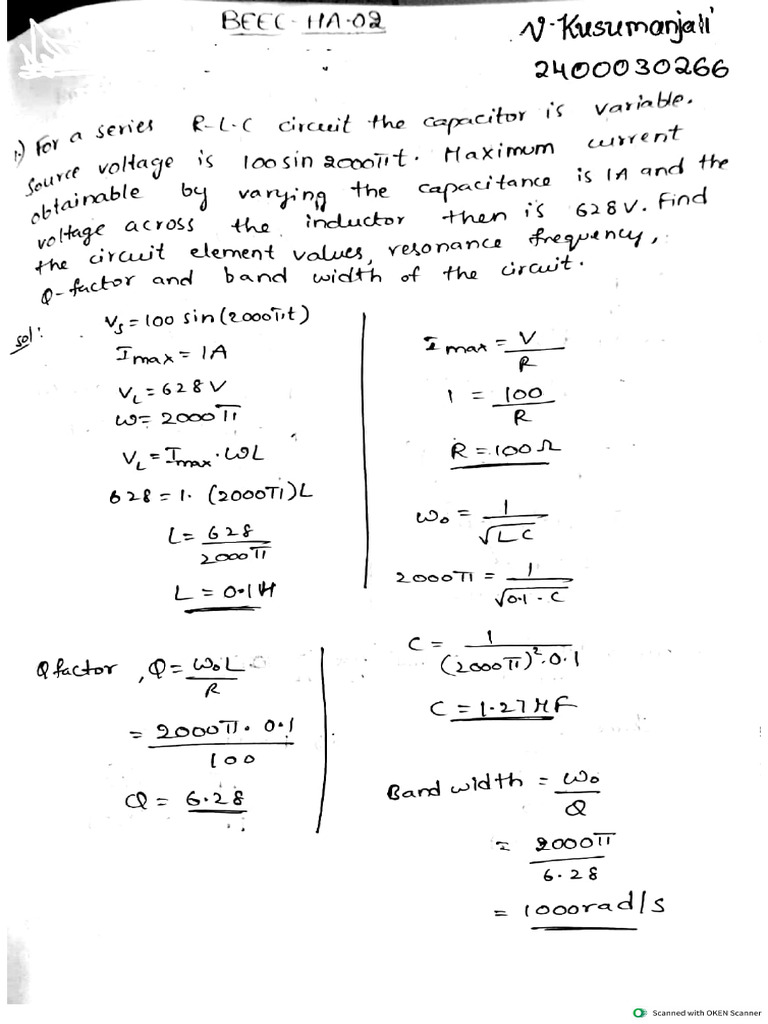 BEEC-HA-02
N. Kusumanjali
2400030266
1.) For a series R-L-C circuit the capacitor is variable.
Source voltage is 100 sin 2000πt. Maximum current
obtainable by varying the capacitance is 1A and the
voltage across the inductor then is 628V. Find
the circuit element values, resonance frequency,
Q-factor and band width of the circuit.
Sol:
Vs = 100 sin(2000πt)
Imax = 1A
VL = 628V
ω = 2000π
VL = Imax · ωL
628 = 1. (2000π)L
L = 628/2000π
L = 0.1H
Imax = V/R
1 = 100/R
R = 100Ω
ω₀ = 1/√LC
2000π = 1/√0.1·C
C = 1/(2000π)²·0.1
C = 1.27 μF
Q factor, Q = ω₀L/R
= 2000π·0.1/100
Q = 6.28
Band width = ω₀/Q
= 2000π/6.28
= 1000 rad/s
Scanned with OKEN Scanner